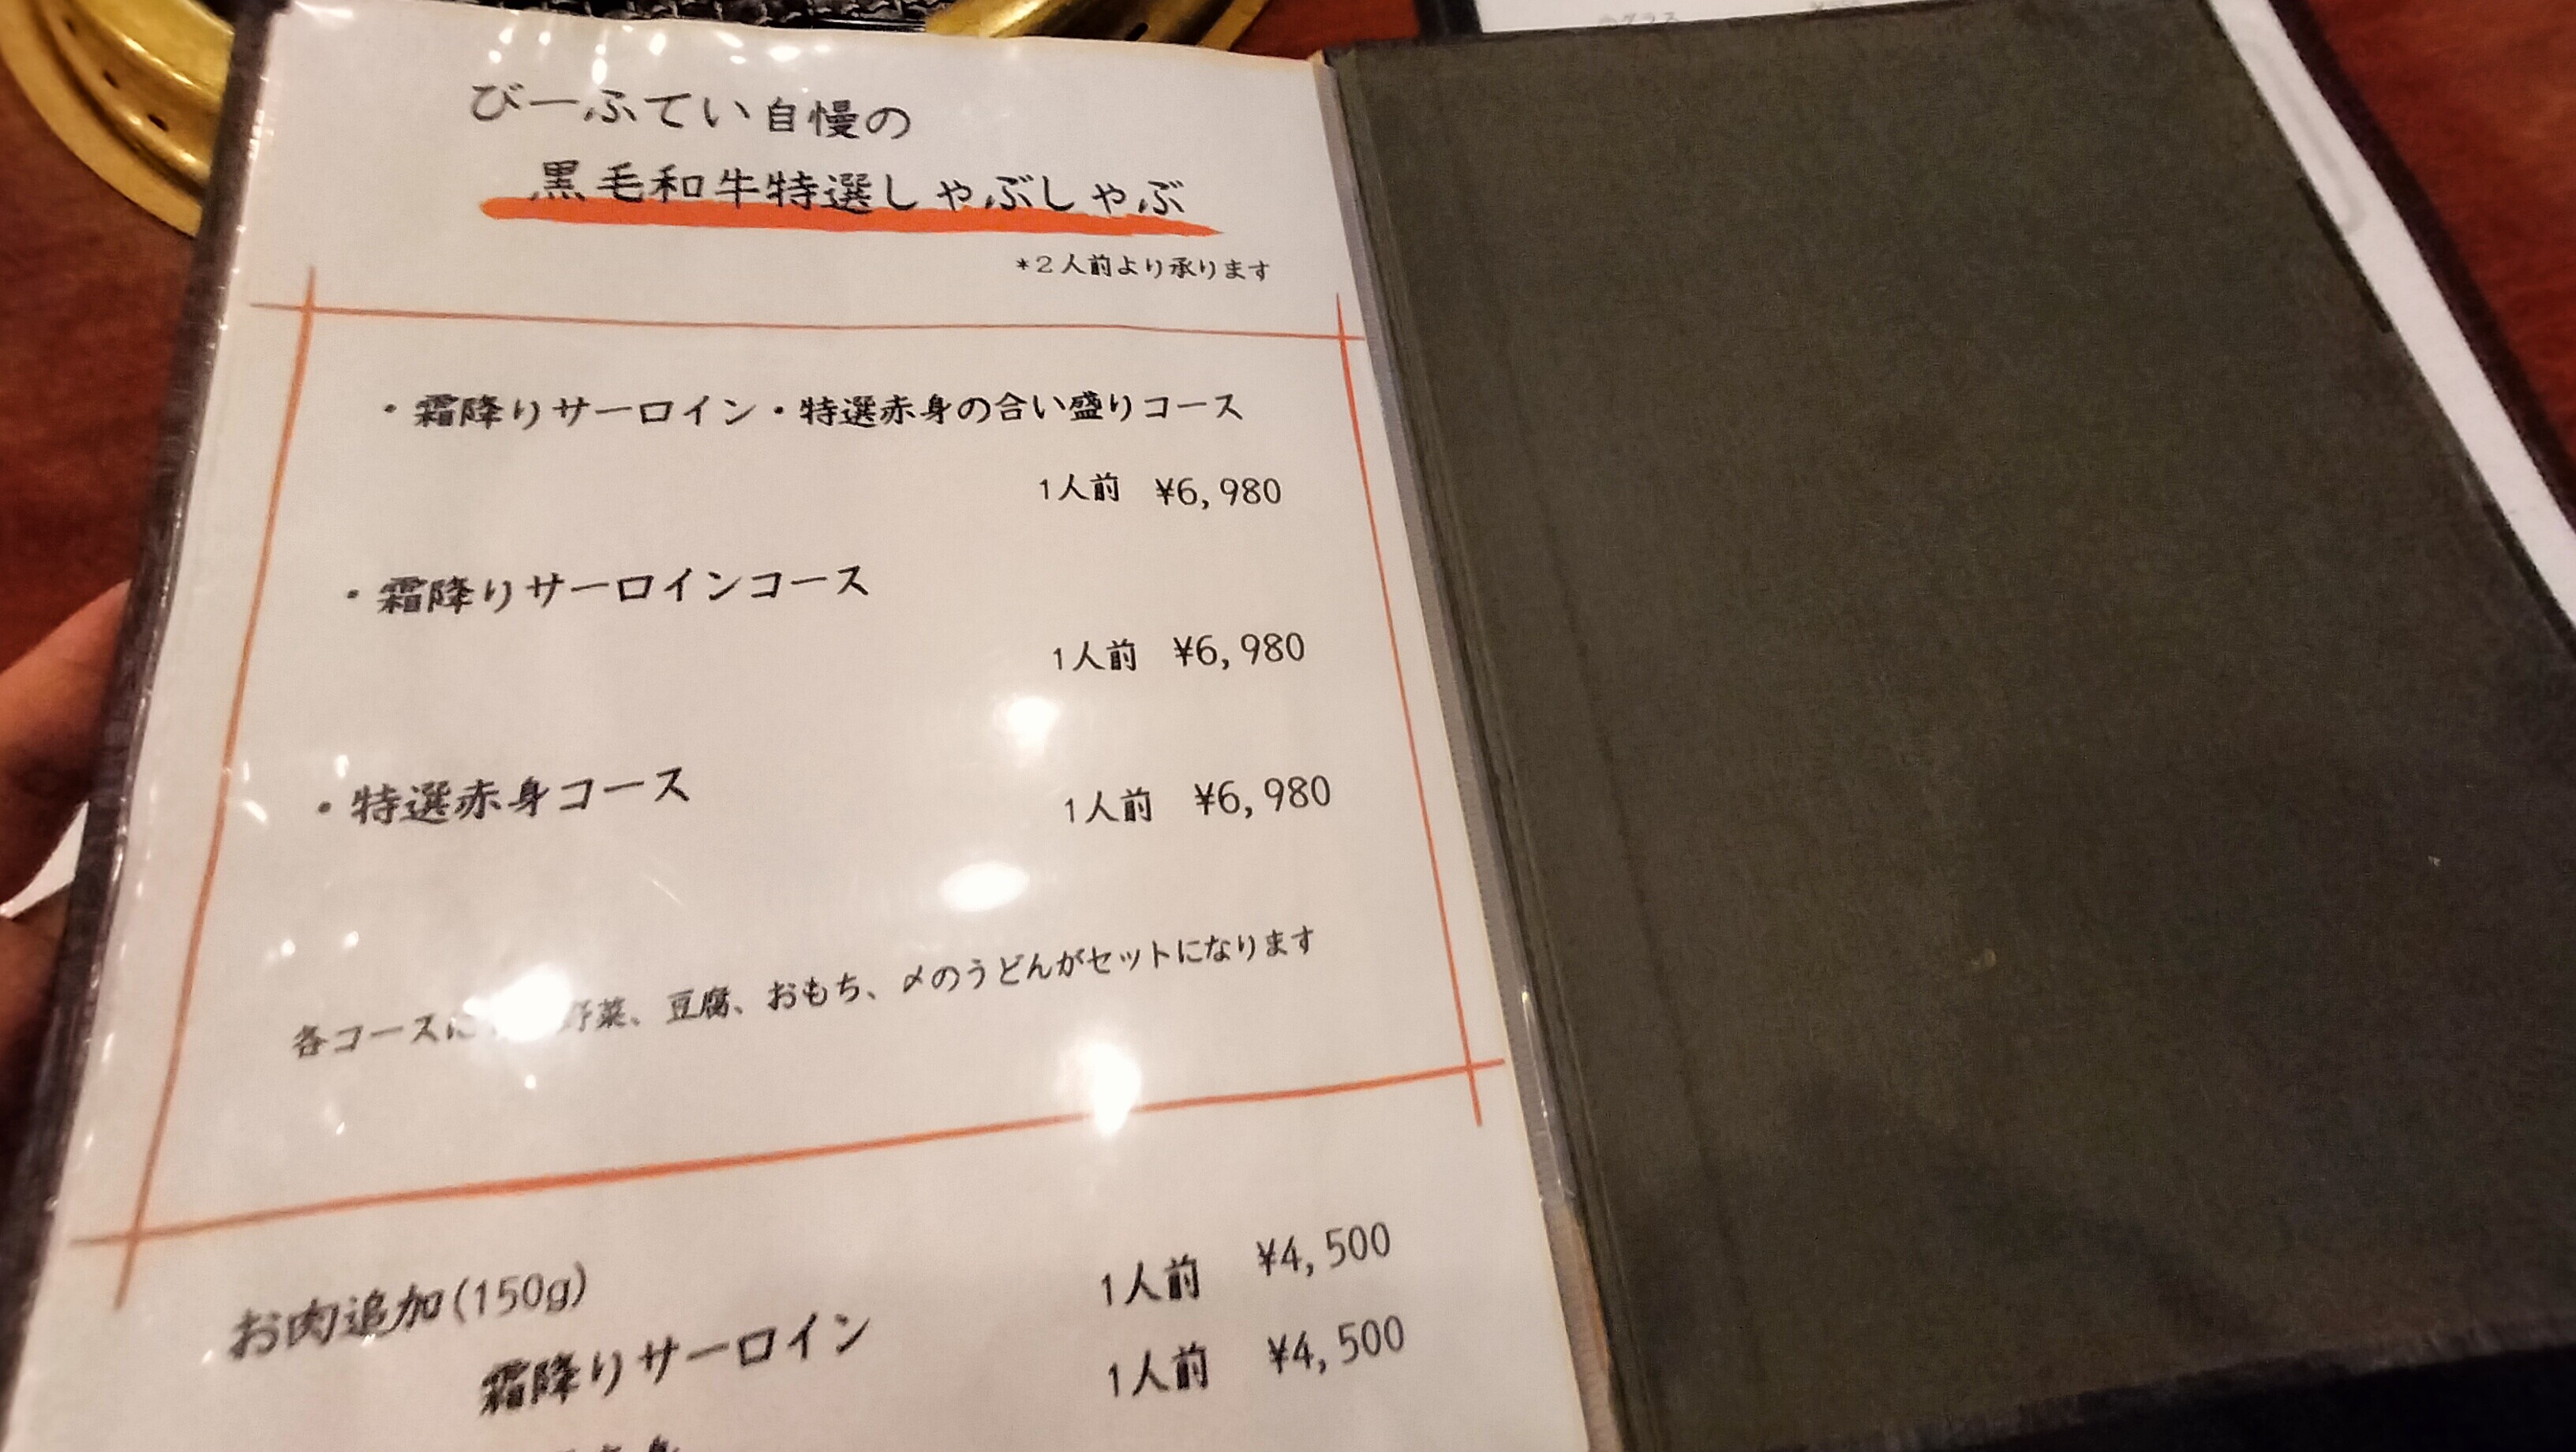 びーふてい自慢の
黒毛和牛特選しゃぶしゃぶ
*2人前より承ります
・霜降りサーロイン・特選赤身の合い盛りコース
1人前 ¥6,980
・霜降りサーロインコース
1人前 ¥6,980
・特選赤身コース 1人前 ¥6,980
各コースに 野菜、豆腐、おもち、〆のうどんがセットになります
お肉追加(150g)
霜降りサーロイン 1人前 ¥4,500
1人前 ¥4,500